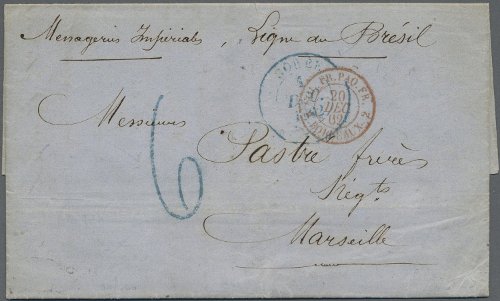 Messageries Impériales, Ligne du Brésil
GORÉE
1
PAQ. FR.
20
DEC
62
BORDEAUX. 2
Messieurs
6
Pastré frères
Négts
Marseille